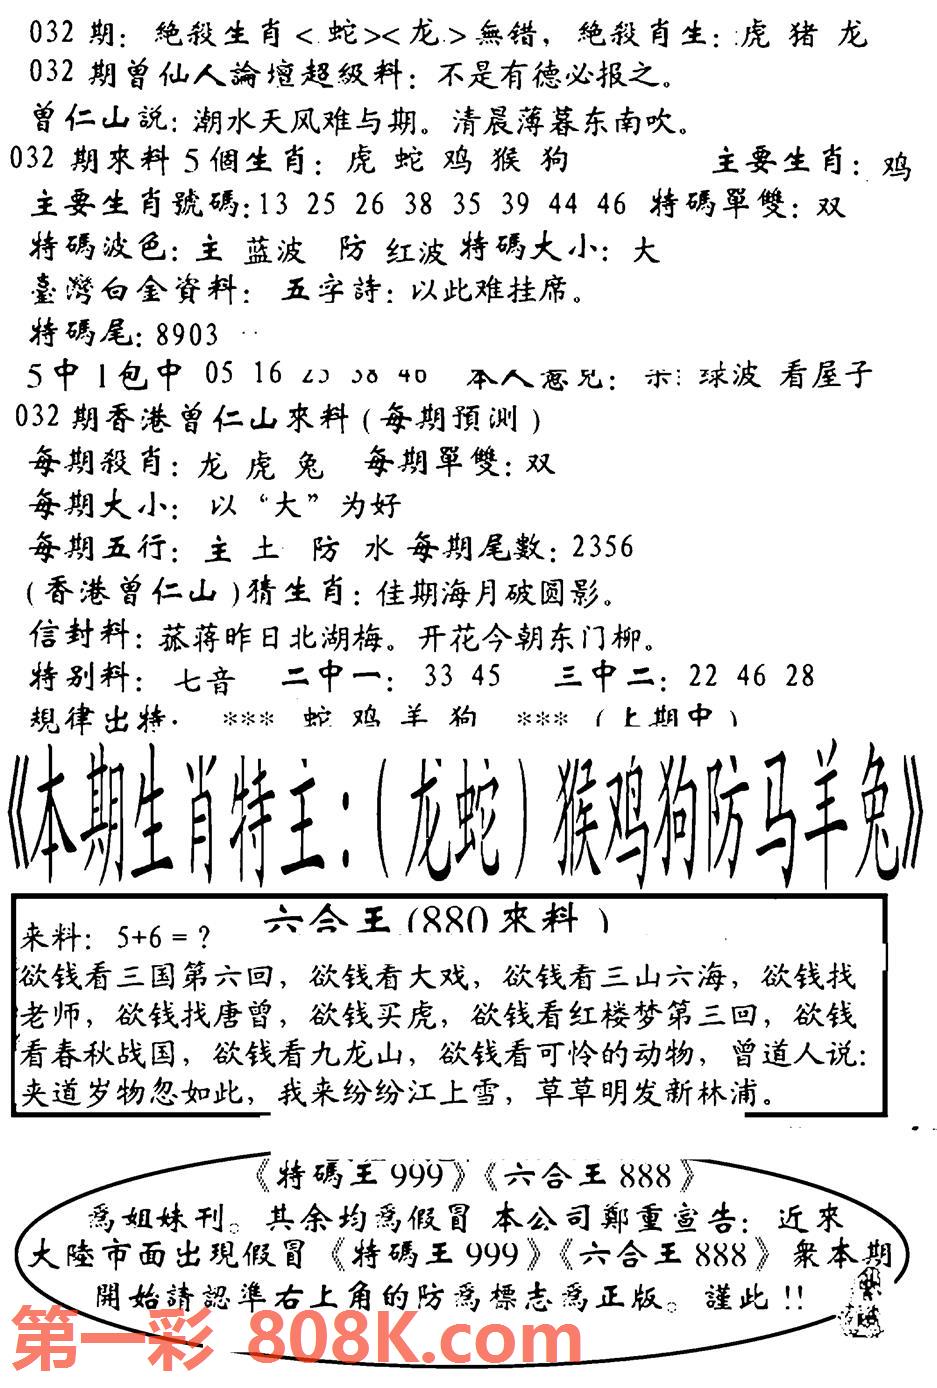 032 期: 絶殺生肖<蛇><龙>無错, 絶殺肖生: 虎 猪 龙
032 期曾仙人論壇超級料: 不是有德必报之。
曾仁山説: 潮水天风难与期。清晨薄暮东南吹。
032 期來料 5 個生肖: 虎 蛇 鸡 猴 狗 主要生肖: 鸡
主要生肖號碼:13 25 26 38 35 39 44 46 特碼單雙: 双
特碼波色: 主 蓝波 防 红波 特碼大小: 大
臺灣白金資料: 五字詩: 以此难挂席。
特碼尾: 8903
5 中 1 包中 05 16 25 38 46 本人意见: 球波 看屋子
032 期香港曾仁山來料 ( 每期預測 )
每期殺肖: 龙 虎 兔 每期單雙: 双
每期大小: 以“大”为好
每期五行: 主 土 防 水 每期尾數: 2356
( 香港曾仁山 ) 猜生肖: 佳期海月破圆影。
信封料: 菰蒋昨日北湖梅。开花今朝东门柳。
特别料: 七音 二中一: 33 45 三中二: 22 46 28
規律出特: *** 蛇 鸡 羊 狗 *** (上期中)
《本期生肖特主:(龙蛇)猴鸡狗防马羊兔》
六合王 (880 來料 )
来料: 5+6 = ?
欲钱看三国第六回, 欲钱看大戏, 欲钱看三山六海, 欲钱找
老师, 欲钱找唐曾, 欲钱买虎, 欲钱看红楼梦第三回, 欲钱
看春秋战国, 欲钱看九龙山, 欲钱看可怜的动物, 曾道人说:
夹道岁物忽如此, 我来纷纷江上雪, 草草明发新林浦。
《特碼王 999》《六合王 888》
爲姐妹刊。其余均爲假冒 本公司鄭重宣告: 近來
大陸市面出現假冒《特碼王 999》《六合王 888》衆本期
開始請認準右上角的防爲標志爲正版。謹此 !!
第一彩 808K.com